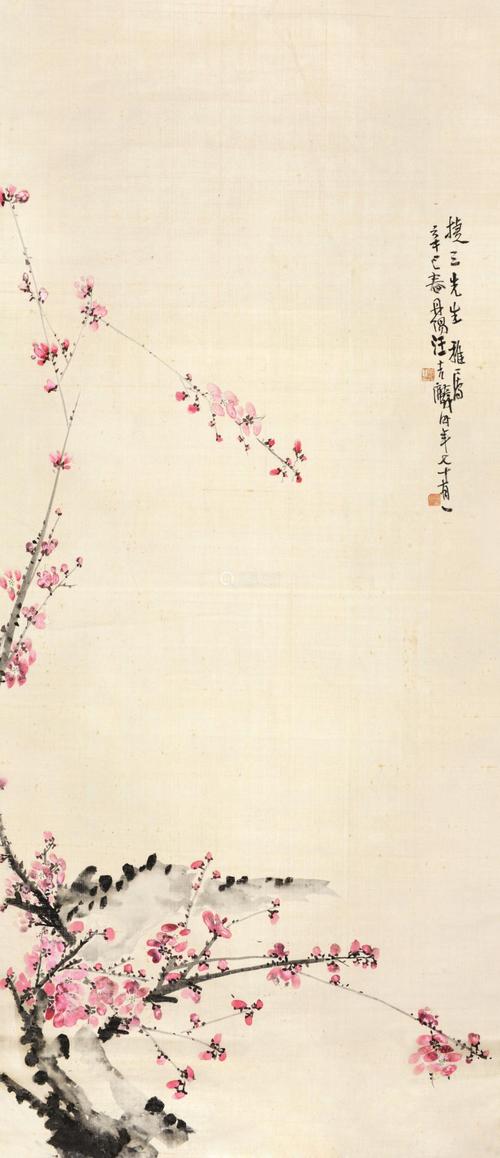 捷三先生雅屬
辛巳春丹陽汪吉麟時年七十有一